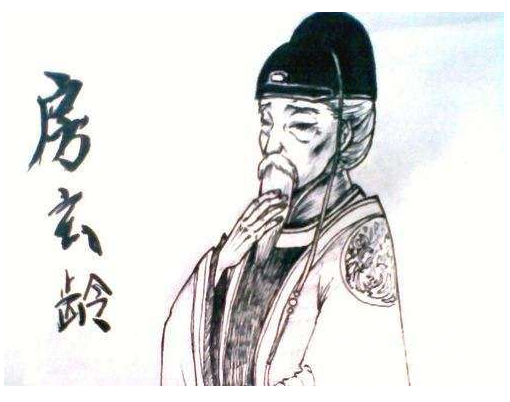 房玄龄